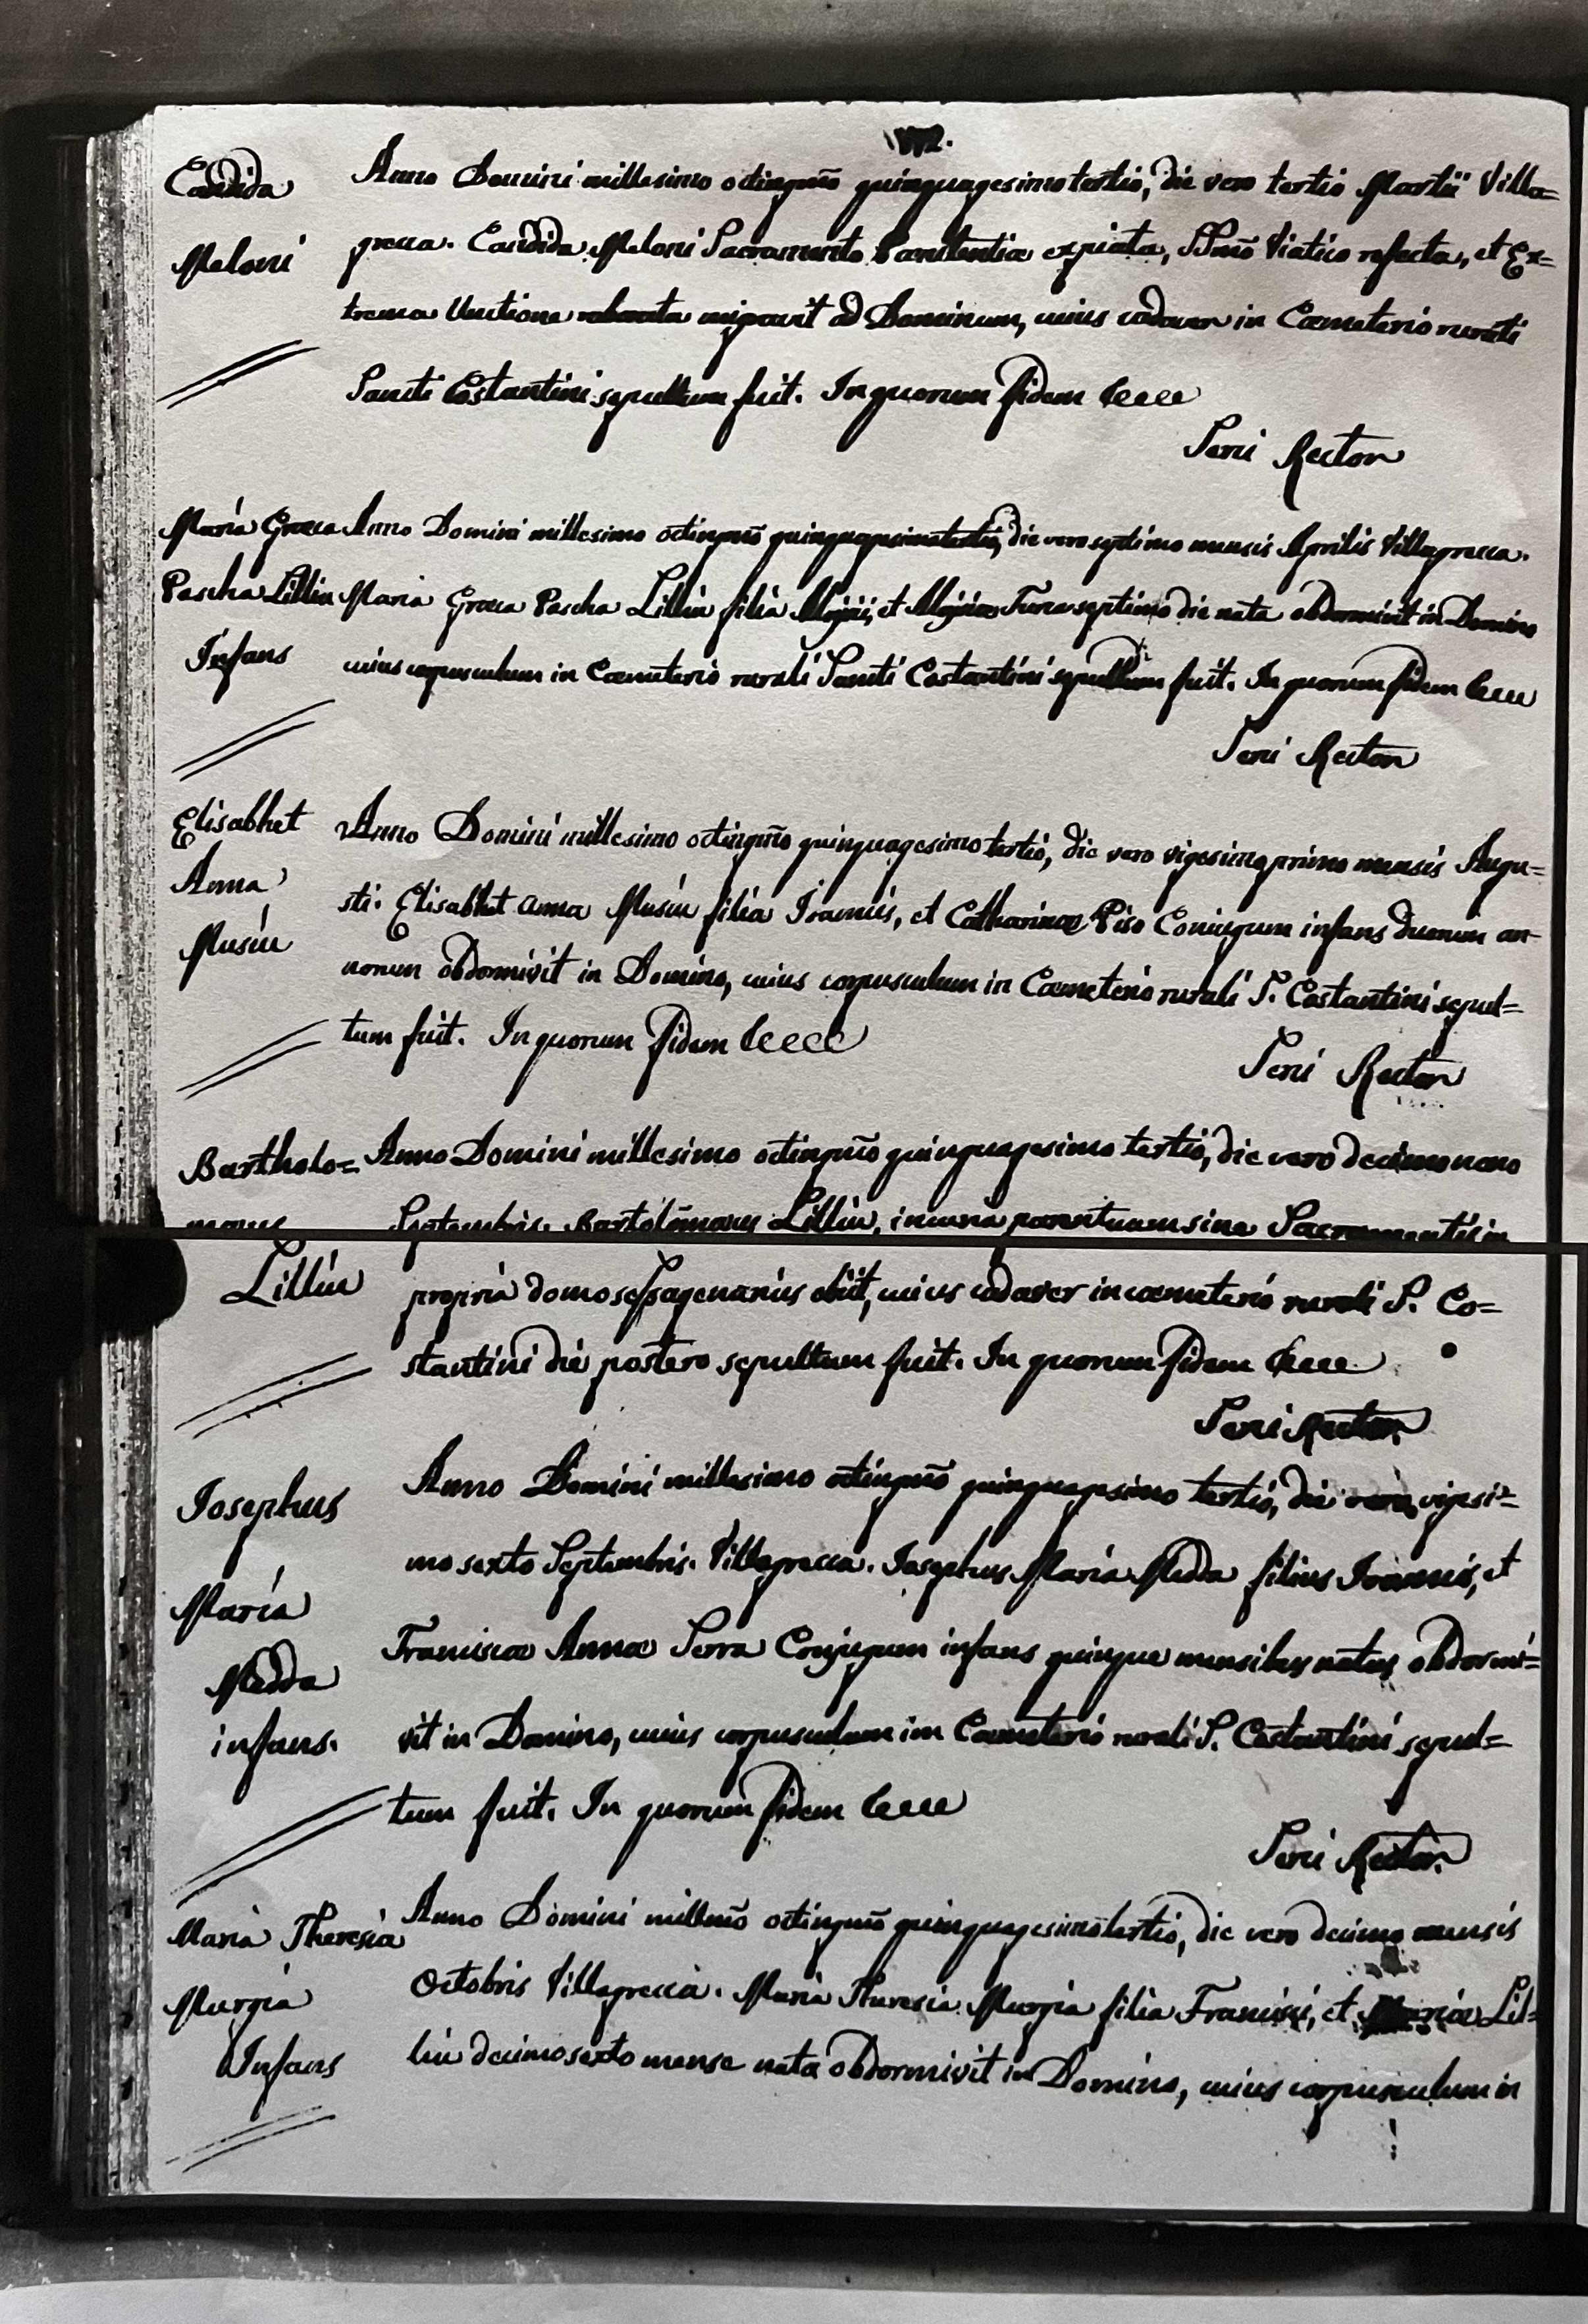 Candida
Meloni
Anno Domini millesimo octingmõ quinquagesimo tertio, die vero tertio Martii Villa=
greca. Candida Meloni Sacramento Pænitentiæ expiata, SSmõ Viatico refecta, et Ex=
trema Unctione roborata migravit ad Dominum, cuius cadaver in Cæmeterio rurali
Sancti Costantini sepultum fuit. In quorum fidem &
Seni Rector
Maria Greca
Pascha Lilliu
Infans
Anno Domini millesimo octingmõ quinquagesimotertio, die vero septimo mensis Aprilis Villagrecca.
Maria Greca Pascha Lilliu filia Aloysii, et septimo die nata obdormivit in Domino
cuius corpusculum in Cæmeterio rurali Sancti Costantini sepultum fuit. In quorum fidem &
Seni Rector
Elisabhet
Anna
Musiu
Anno Domini millesimo octingmõ quinquagesimo tertio, die vero vigesimoprimo mensis Augu=
sti. Elisabhet Anna Musiu filia Ioannis, et Catharinæ Piso Coniugum infans duorum an=
norum obdormivit in Domino, cuius corpusculum in Cæmeterio rurali S. Costantini sepul=
tum fuit. In quorum fidem &
Seni Rector
Bartholo=
mæus
Lilliu
Anno Domini millesimo octingmõ quinquagesimo tertio, die vero decimonono
Septembris. Bartolõmæus Lilliu, sine Sacramentis in
propria domo obiit, cuius cadaver in cæmeterio rurali S. Co=
stantini die postero sepultum fuit. In quorum fidem &
Seni Rector.
Iosephus
Maria
Medda
infans.
Anno Domini millesimo octingmõ quinquagesimo tertio, die vero vigesi=
mo sexto Septembris. Villagrecca. Iosephus Maria Medda filius Ioannis, et
Francisca Anna Serra Conjugum infans quinque mensibus natus obdormi=
vit in Domino, cuius corpusculum in Cæmeterio rurali S. Costantini sepul=
tum fuit. In quorum fidem &
Seni Rector.
Maria Theresia
Murgia
Infans
Anno Domini millmõ octingmõ quinquagesimotertio, die vero decimo mensis
Octobris Villagrecca. Maria Theresia Murgia filia Francisci, et Mariæ Lil=
liu decimosexto mense nata obdormivit in Domino, cuius corpusculum in